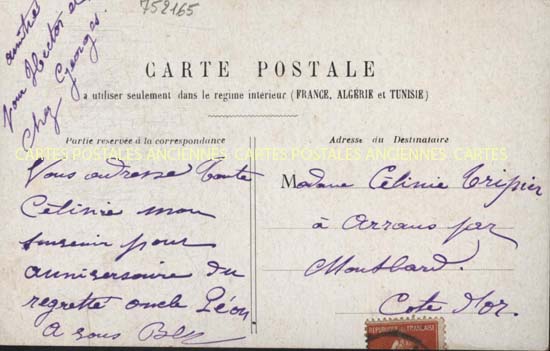 752165
amitiés
pour Hector et
chez Georges.
CARTE POSTALE
a utiliser seulement dans le regime intérieur (FRANCE, ALGÉRIE et TUNISIE)
Partie reservée à la correspondance
Vous adresse tante
Célinie mon
souvenir pour
anniversaire du
regretté oncle Léon
A vous
Adresse du Destinataire
Madame Célinie Tripier
à Arrans par
Montbard.
Cote d'Or.
CARTES POSTALES ANCIENNES CARTES POSTALES ANCIENNES CARTES
REPUBLIQUE FRANÇAISE